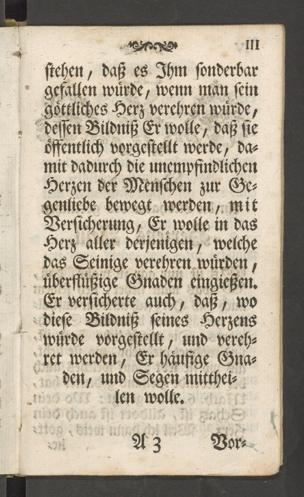 III
stehen, daß es Jhm sonderbar
gefallen würde, wenn man sein
göttliches Herz verehren würde,
dessen Bildniß Er wolle, daß sie
öffentlich vorgestellt werde, da-
mit dadurch die unempfindlichen
Herzen der Menschen zur Ge-
genliebe bewegt werden, mit
Versicherung, Er wolle in das
Herz aller derjenigen, welche
das Seinige verehren würden,
überflüßige Gnaden eingießen.
Er versicherte auch, daß, wo
diese Bildniß seines Herzens
würde vorgestellt, und vereh-
ret werden, Er häufige Gna-
den, und Segen mitthei-
len wolle.
A 3 Vor-